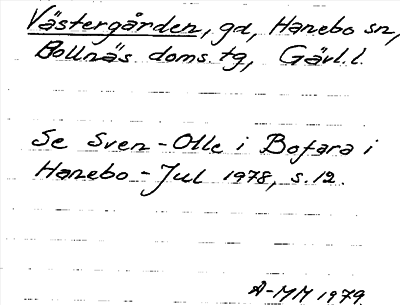 Västergården, gd, Hanebo sn,
Bollnäs doms.tg, Gävl.l.
Se Sven-Olle i Bofara i
Hanebo - Jul 1978, s.12.
A-MM 1979.